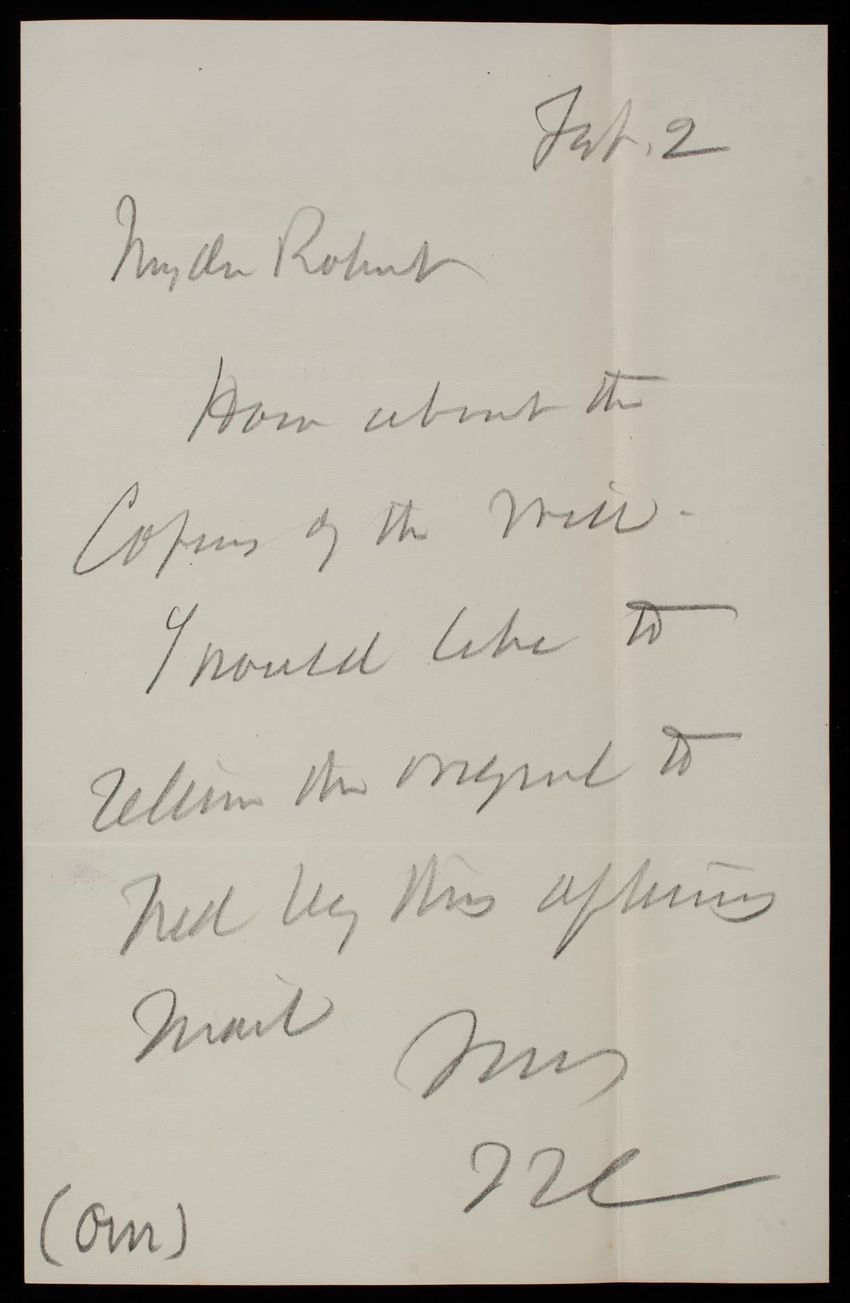 Feb. 2
My dr Robert
How about the
Copies of the Will -
I would like to
return the original to
Ned by this afternoons
Mail
Yours
TLC
(over)